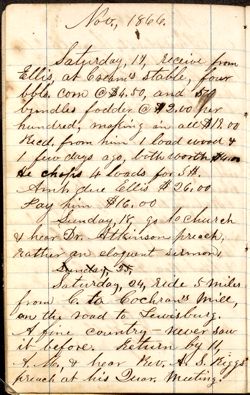 Nov, 1866.
Saturday, 17, receive from
Ellis, at Cochran's Stable, four
bbls. corn @ $4.50, and 50
bundles fodder @ $2.00 per
hundred, making in all $19.00
Recd. from him 1 load wood &
1 few days ago, both worth $4.00
He chops 4 loads for $3.
Amt. due Ellis $26.00
Pay him $16.00
Sunday, 18, go to church
& hear Dr. Atkinson preach,
rather an eloquent sermon.
Saturday, 24, Ride 5 miles
from C. to Cochran's Mill,
on the road to Lewisburg.
A fine country - never saw
it before. Return by 11,
A.M., & hear Rev. A. S. Riggs
preach at his Quar. Meeting.